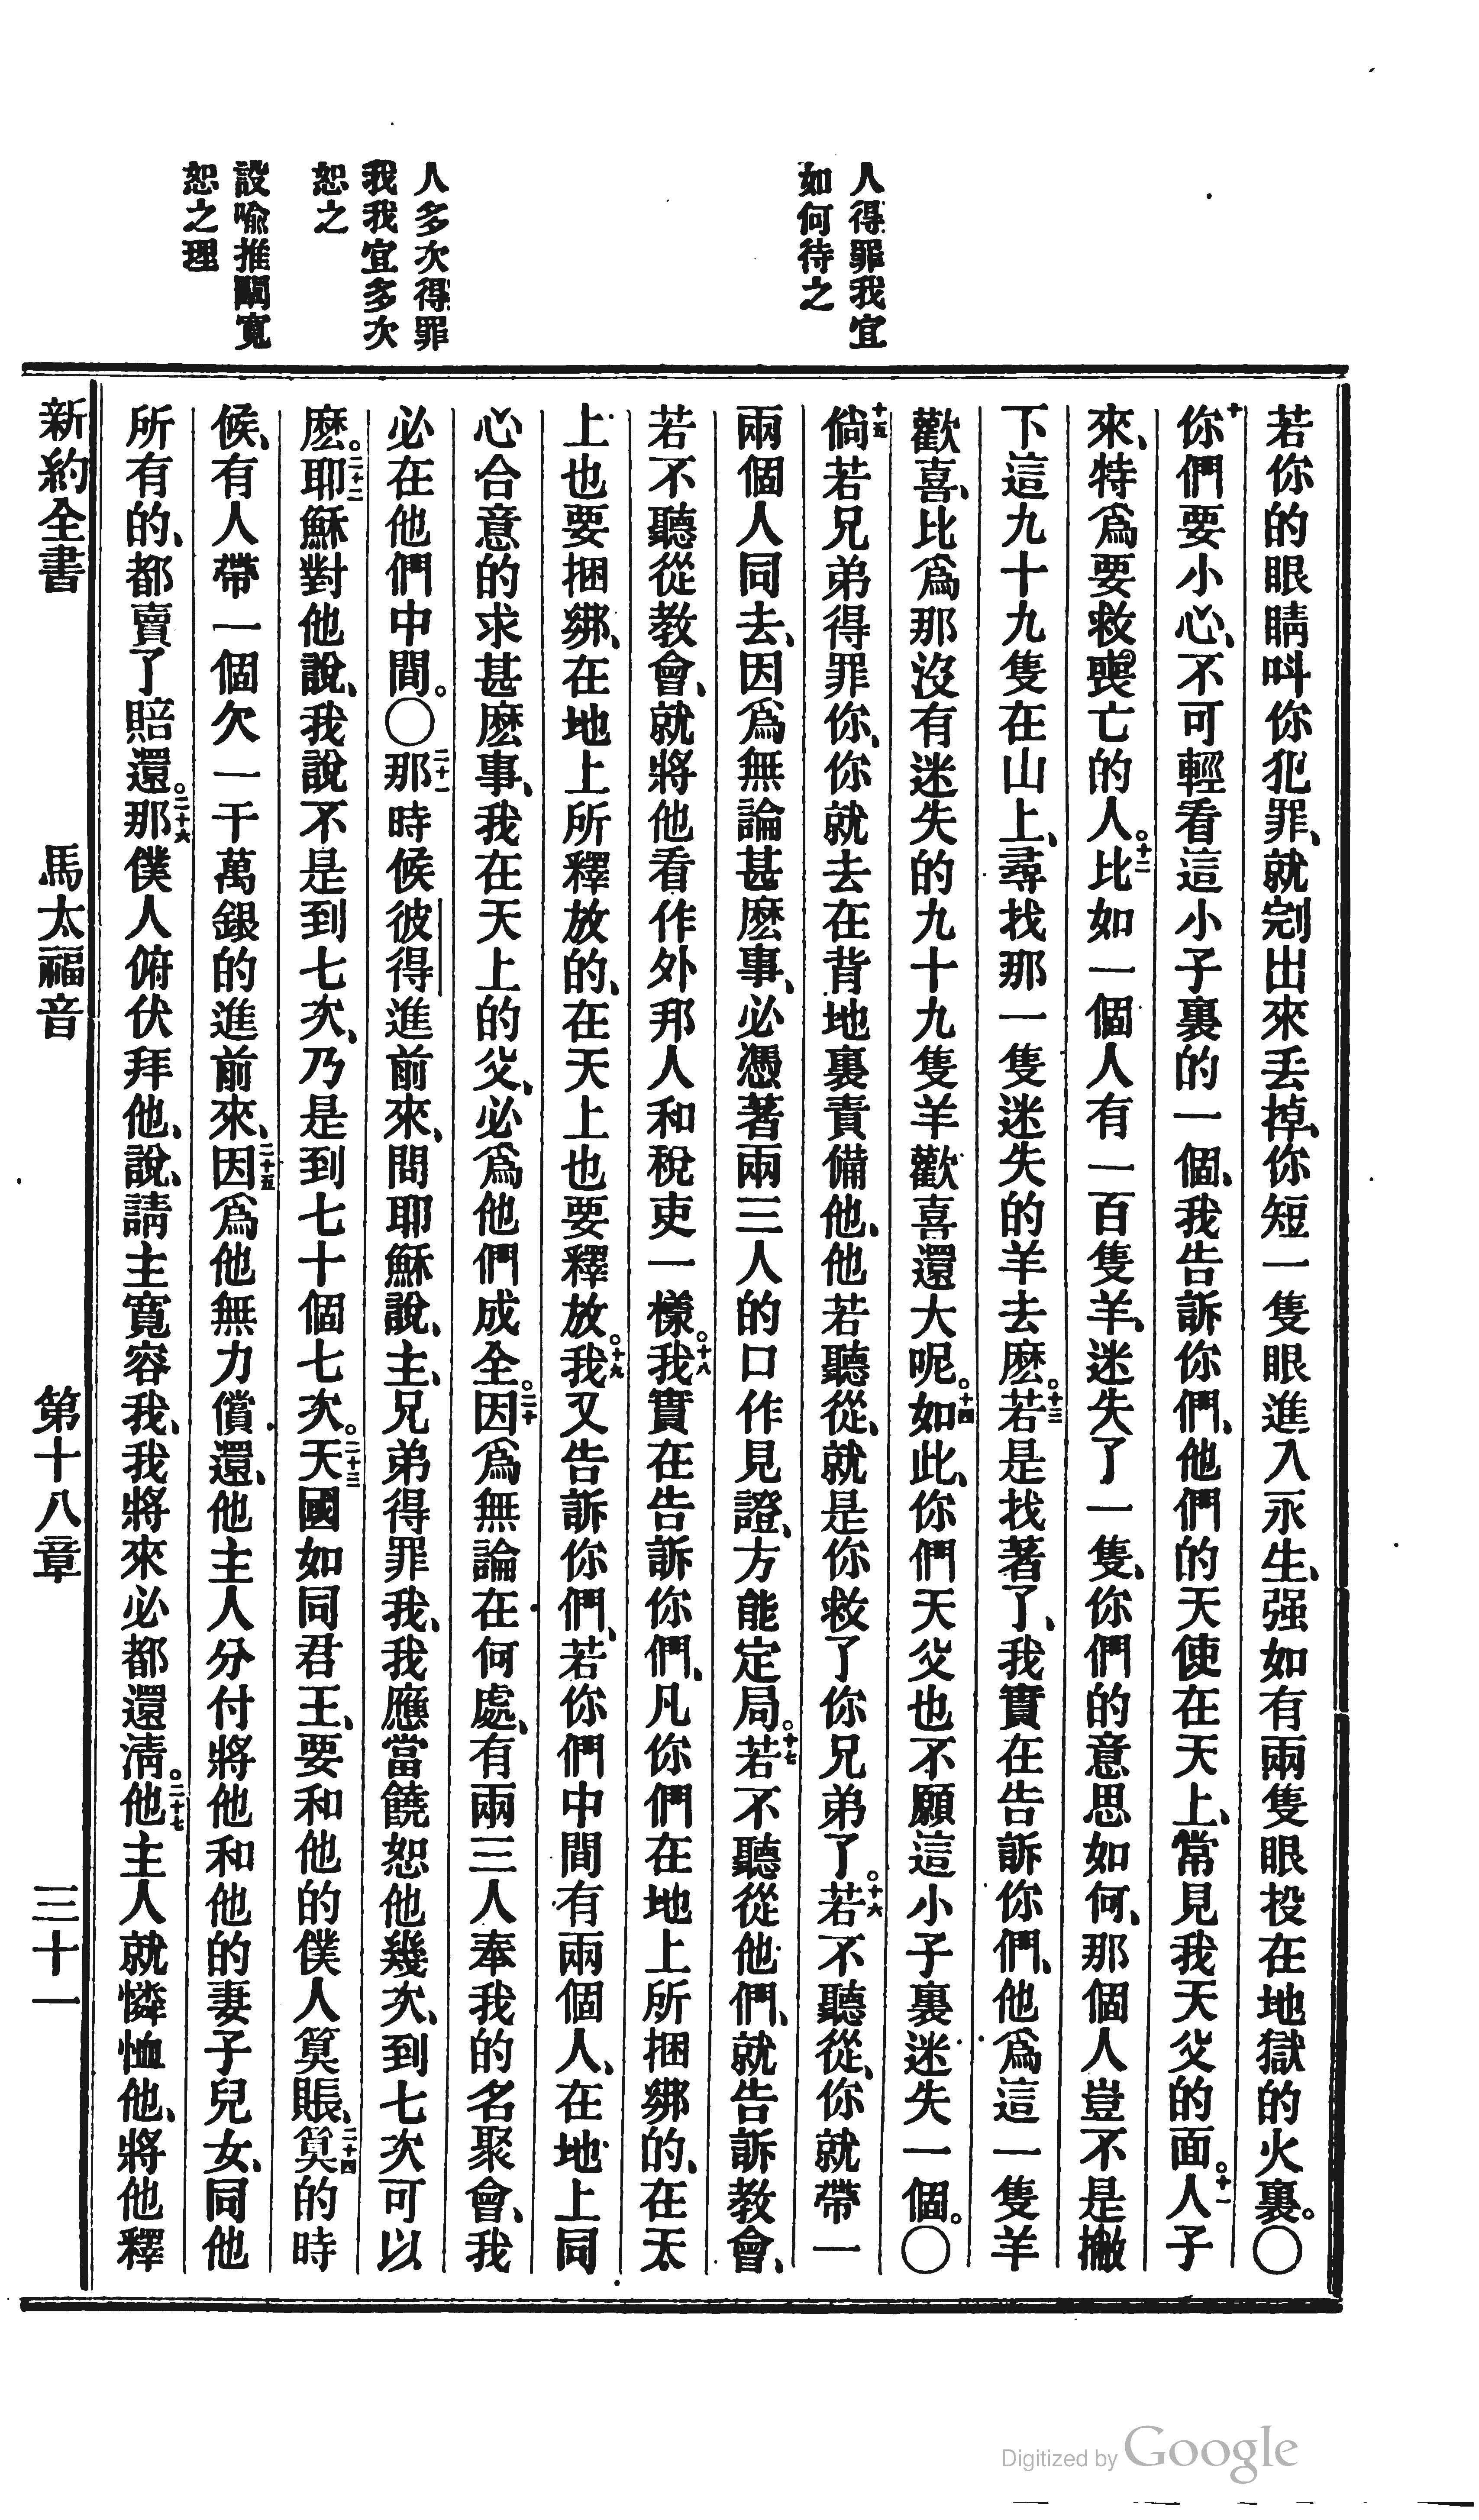 人得罪我宜
如何待之
人多次得罪
我我宜多次
恕之
設喻推闡寬
恕之理
若你的眼睛叫你犯罪、就剜出來丟掉、你短一隻眼進入永生、强如有兩隻眼投在地獄的火裏。〇
十你們要小心、不可輕看這小子裏的一個、我告訴你們、他們的天使在天上、常見我天父的面。十一人子
來、特爲要救喪亡的人。十二比如一個人有一百隻羊、迷失了一隻、你們的意思如何、那個人豈不是撇
下這九十九隻在山上、尋找那一隻迷失的羊去麽。十三若是找著了、我實在告訴你們、他爲這一隻羊
歡喜、比爲那沒有迷失的九十九隻羊歡喜還大呢。十四如此、你們天父也不願這小子裏迷失一個。〇
十五倘若兄弟得罪你、你就去在背地裏責備他、他若聽從、就是你救了你兄弟了。十六若不聽從、你就帶一
兩個人同去、因爲無論甚麽事、必憑著兩三人的口作見證、方能定局。十七若不聽從他們、就告訴教會、
若不聽從教會、就將他看作外邦人和稅吏一樣。十八我實在告訴你們、凡你們在地上所捆綁的、在天
上也要捆綁、在地上所釋放的、在天上也要釋放。十九我又告訴你們、若你們中間有兩個人、在地上同
心合意的求甚麽事、我在天上的父、必爲他們成全。二十因爲無論在何處、有兩三人奉我的名聚會、我
必在他們中間。〇二十一那時候彼得進前來、問耶穌說、主、兄弟得罪我、我應當饒恕他幾次、到七次可以
麽。二十二耶穌對他說、我說不是到七次、乃是到七十個七次。二十三天國如同君王、要和他的僕人算賬、二十四算的時
候、有人帶一個欠一千萬銀的進前來、二十五因爲他無力償還、他主人分付將他和他的妻子兒女、同他
所有的、都賣了賠還。二十六那僕人俯伏拜他、說、請主寬容我、我將來必都還淸。二十七他主人就憐恤他、將他釋
新約全書　馬太福音　第十八章　三十一
Digitized by Google